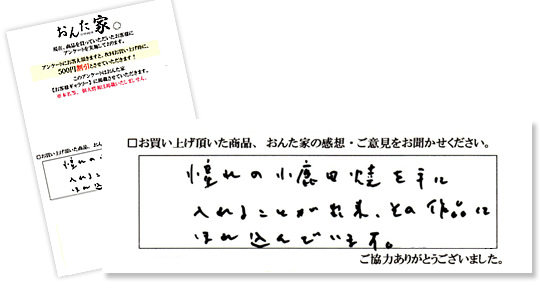 おんた家。
現在、商品を買っていただいたお客様に
アンケートを実施しております。
アンケートにお答え頂きますと、次回お買い上げ時に、
500円割引とさせていただきます!
このアンケートはおんた家
【お客様ギャラリー】に掲載させていただきます。
□お買い上げ頂いた商品、おん
憧れの
入れる
ほれ込
□お買い上げ頂いた商品、おんた家の感想・ご意見をお聞かせください。
憧れの小鹿田焼を手に
入れることが出来、その作品に
ほれ込んでいます。
ご協力ありがとうございました。